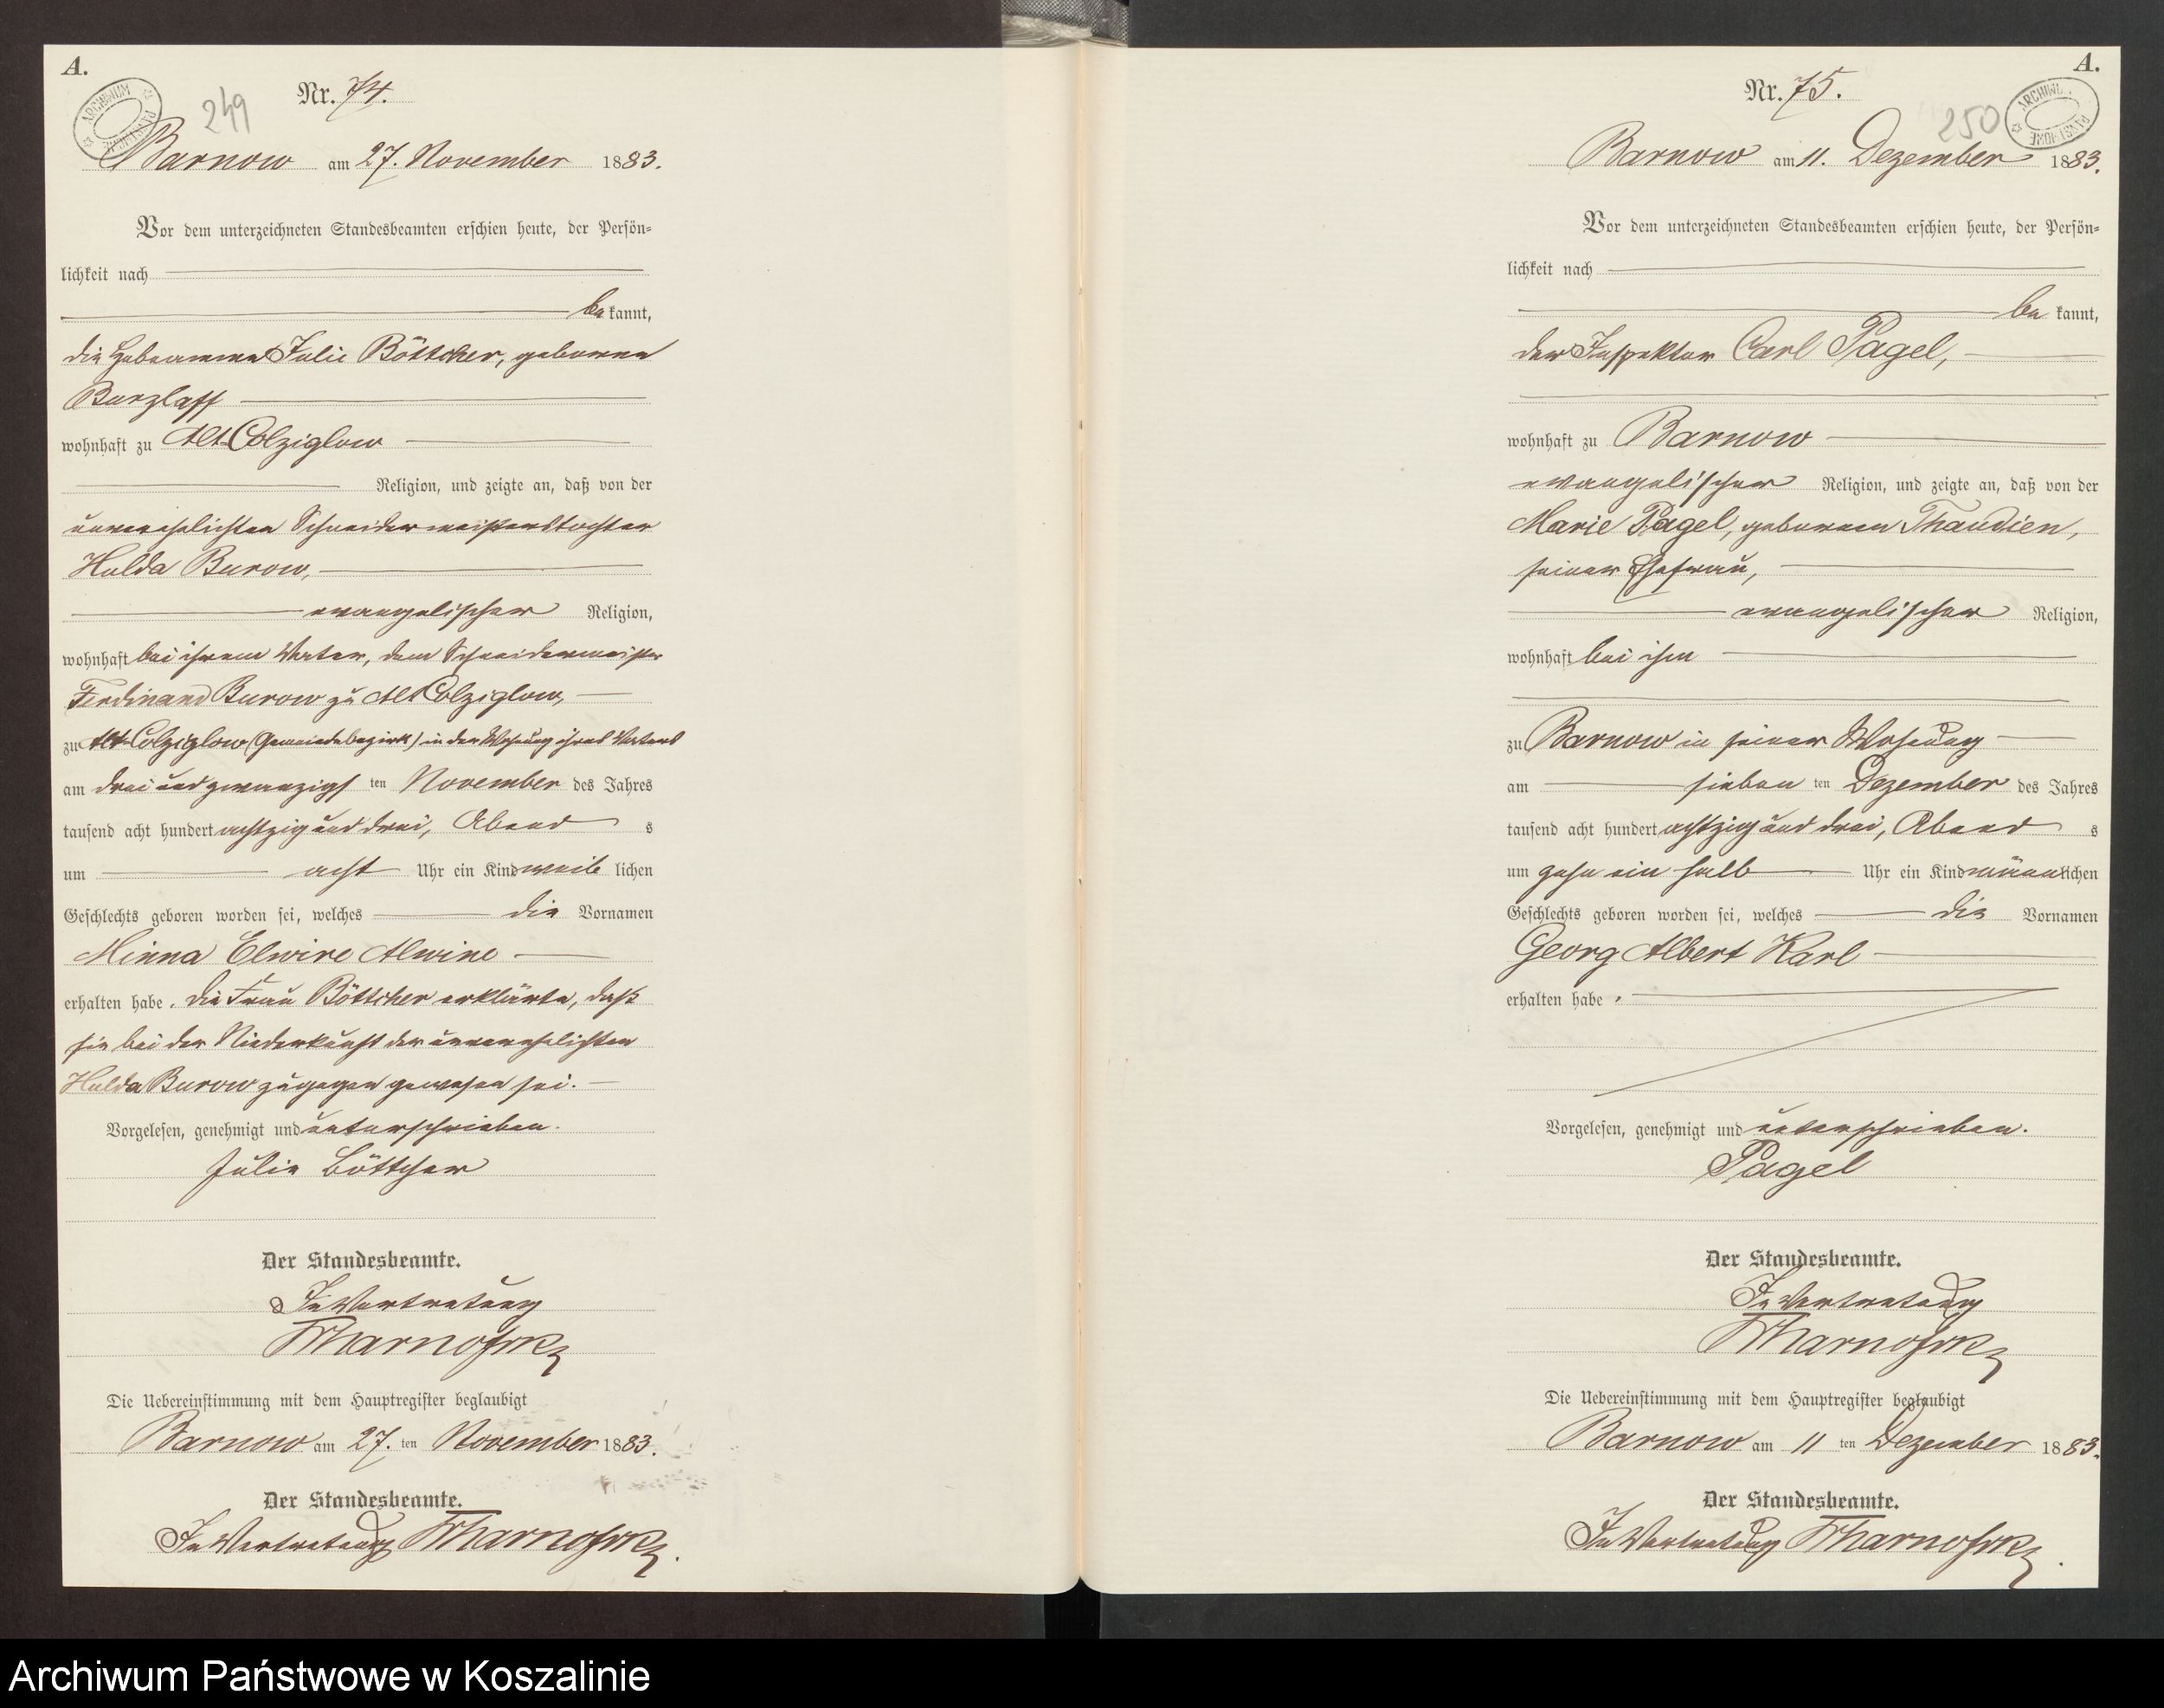 A.
ARCHIWUM PAŃSTWOWE
249
Nr. 74.
Barnow am 27. November 1883.
Vor dem unterzeichneten Standesbeamten erschien heute, der Persön=
lichkeit nach
be kannt,
die Hebeamme Julie Böttcher, geborene
Burzlaff
wohnhaft zu Alt Colziglow
Religion, und zeigte an, daß von der
unverehelichten Schneidermeisterstochter
Hulda Burow,
evangelischer Religion,
wohnhaft bei ihrem Vater, dem Schneidermeister
Ferdinand Burow zu Alt Colziglow,
zu Alt-Colziglow (Gemeindebezirk) in der Wohnung ihres Vaters
am drei und zwanzigs ten November des Jahres
tausend acht hundert achtzig und drei, Abend s
um acht Uhr ein Kind weib lichen
Geschlechts geboren worden sei, welches die Vornamen
Minna Elwire Alwine
erhalten habe. Die Frau Böttcher erklärte, daß
sie bei der Niederkunft der unverehelichten
Hulda Burow zugegen gewesen sei.
Vorgelesen, genehmigt und unterschrieben.
Julie Böttcher
Der Standesbeamte.
In Vertretung
Die Uebereinstimmung mit dem Hauptregister beglaubigt
Barnow am 27. ten November 1883.
Der Standesbeamte.
In Vertretung
A.
ARCHIWUM PAŃSTWOWE
250
Nr. 75.
Barnow am 11. Dezember 1883.
Vor dem unterzeichneten Standesbeamten erschien heute, der Persön=
lichkeit nach
be kannt,
der Inspektor Carl Pagel,
wohnhaft zu Barnow
evangelischer Religion, und zeigte an, daß von der
Marie Pagel, geborenen Thaudien,
seiner Ehefrau,
evangelischer Religion,
wohnhaft bei ihm
zu Barnow in seiner Wohnung
am sieben ten Dezember des Jahres
tausend acht hundert achtzig und drei, Abend s
um zehn ein halb Uhr ein Kind männlichen
Geschlechts geboren worden sei, welches die Vornamen
Georg Albert Karl
erhalten habe.
Vorgelesen, genehmigt und unterschrieben.
Pagel
Der Standesbeamte.
In Vertretung
Die Uebereinstimmung mit dem Hauptregister beglaubigt
Barnow am 11 ten Dezember 1883.
Der Standesbeamte.
In Vertretung
Archiwum Państwowe w Koszalinie